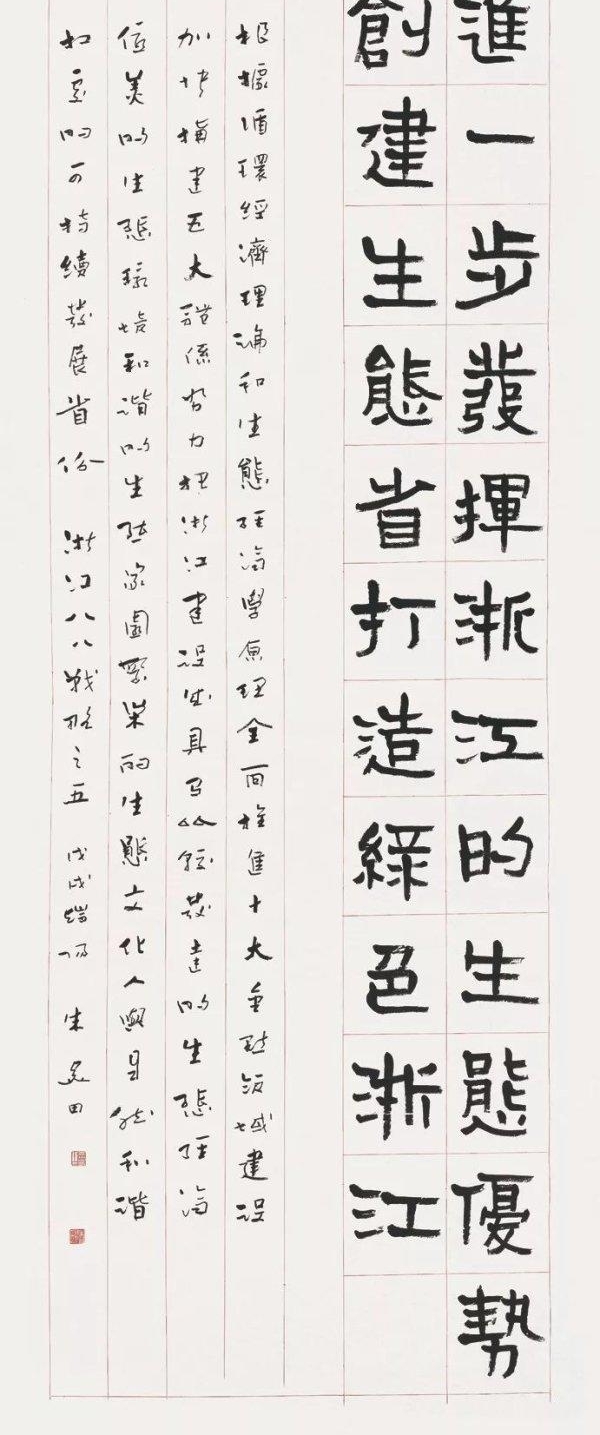 進一步發揮浙江的生態優勢
創建生態省打造綠色浙江
根據循環經濟理論和生態經濟學原理全面推進十大重點領域建設
加快構建五大體係努力把浙江建設成具有比較發達的生態經濟
優美的生態環境和諧的生態家園繁榮的生態文化人與自然和諧
相處的可持續發展省份 浙江八八戰略之五 戊戌端陽 朱 田